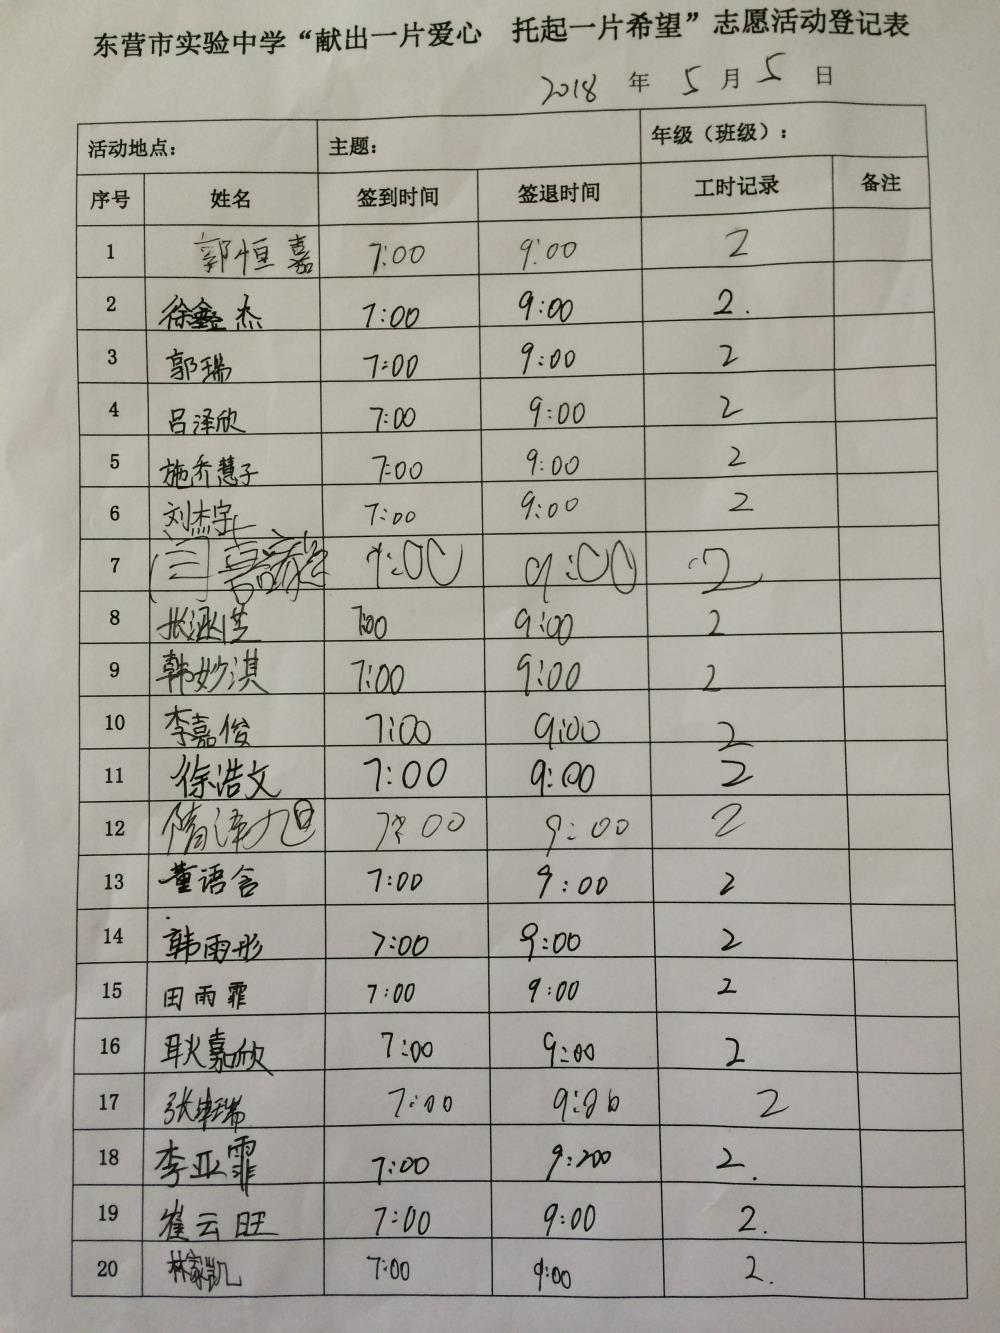 东营市实验中学“献出一片爱心 托起一片希望”志愿活动登记表
2018 年 5 月 5 日
活动地点： 主题： 年级（班级）：
序号 姓名 签到时间 签退时间 工时记录 备注
1 郭恒嘉 7:00 9:00 2
2 徐鑫杰 7:00 9:00 2.
3 郭瑞 7:00 9:00 2
4 吕泽欣 7:00 9:00 2
5 施乔慧子 7:00 9:00 2
6 刘杰宇 7:00 9:00 2
7 7:00 9:00 2
8 张 7:00 9:00 2
9 韩妙淇 7:00 9:00 2
10 李嘉俊 7:00 9:00 2
11 徐浩文 7:00 9:00 2
12 隋泽 7:00 9:00 2
13 董语含 7:00 9:00 2
14 韩雨彤 7:00 9:00 2
15 田雨霏 7:00 9:00 2
16 耿嘉欣 7:00 9:00 2
17 张 7:00 2
18 李亚霏 7:00 9:200 2.
19 崔云旺 7:00 9:00 2.
20 林家凯 7:00 9:00 2.